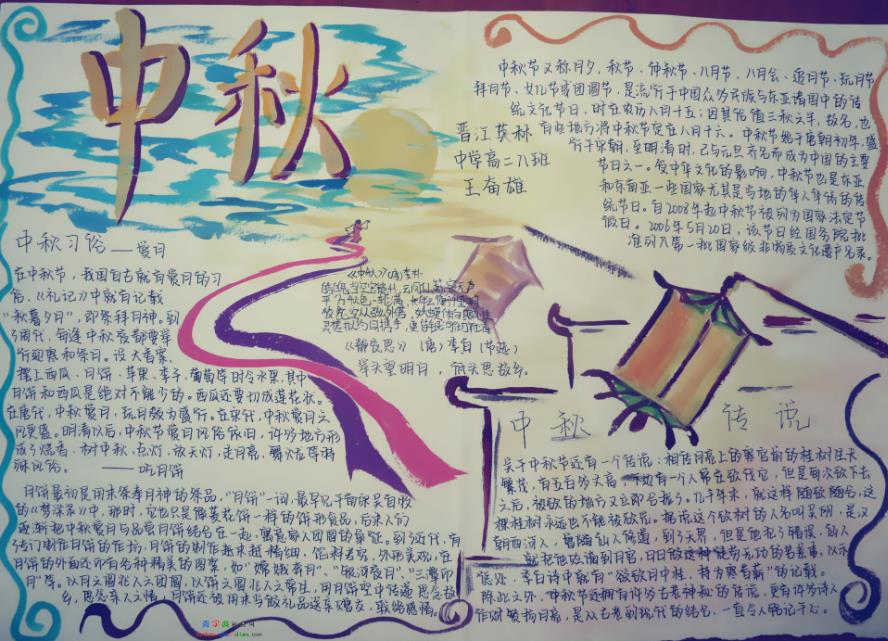 中秋
中秋节又称月夕、秋节、仲秋节、八月节、八月会、追月节、玩月节
拜月节、女儿节或团圆节,是流行于中国众多民族与东亚诸国中的传
统文化节日,时在农历八月十五;因其恰值三秋之半,故名,也
有些地方将中秋节定在八月十六。中秋节始于唐朝初年,盛
行于宋朝,至明清时,已与元旦齐名而成为中国的主要
节日之一。受中华文化的影响,中秋节也是东亚
和东南亚一些国家尤其是当地的华人华侨的传
统节日。自2008年起中秋节被列为国家法定节
假日。2006年5月20日,该节日经国务院批
准列入第一批国家级非物质文化遗产名录。
晋江英林
中学高二八班
王奋雄
中秋习俗——赏月
在中秋节,我国自古就有赏月的习
俗,《礼记》中就有记载
“秋暮夕月”,即祭拜月神。到
了周代,每逢中秋夜都要举
行迎寒和祭月。设大香案,
摆上西瓜、月饼、苹果、李子、葡萄等时令水果,其中
月饼和西瓜是绝对不能少的。西瓜还要切成莲花状。
在唐代,中秋赏月、玩月颇为盛行。在宋代,中秋赏月之
风更盛。明清以后,中秋节赏月风俗依旧,许多地方形
成了烧香、树中秋、点灯、放天灯、走月亮、舞火龙等特
殊风俗。 ——吃月饼
月饼最初是用来祭奉月神的祭品,“月饼”一词,最早见于南宋吴自牧
的《梦梁录》中,那时,它也只是像菱花饼一样的饼形食品,后来人们
逐渐把中秋赏月与品尝月饼结合在一起,寓意家人团圆的象征。到了近代,有
了专门制作月饼的作坊,月饼的制作越来越精细,馅料考究,外形美观,在
月饼的外面还印有各种精美的图案,如“嫦娥奔月”、“银河夜月”、“三潭印
月”等。以月之圆兆人之团圆,以饼之圆兆人之常生,用月饼寄托思念故
乡,思念亲人之情,月饼还被用来当做礼品送亲赠友,联络感情。
《中秋》(唐)李朴
平分秋色一轮满,长伴云衢千里明
狡兔空从弦外落,妖蟆休向眼前生
灵槎拟约同携手,更待银河彻底清
《静夜思》 (唐) 李白(节选)
举头望明月,低头思故乡。
中秋 传说
关于中秋节还有一个传说:相传月亮上的广寒宫前的桂树生长
繁茂,有五百多丈高,下边有一个人常在砍伐它,但是每次砍下去
之后,被砍的地方又立即合拢了。几千年来,就这样随砍随合,这
棵桂树永远也不能被砍光。据说这个砍树的人名叫吴刚,是汉
朝西河人,曾跟随仙人修道,到了天界,但是他犯了错误,仙人
就把他贬谪到月宫,日日做这种徒劳无功的苦差事,以示
惩处。李白诗中就有“欲斫月中桂,持为寒者薪”的记载。
除此之外,中秋节还拥有许多古老神秘的传说,更有许多诗人
作对赞扬月亮,是从古老到现代的结合,一直令人铭记于心。